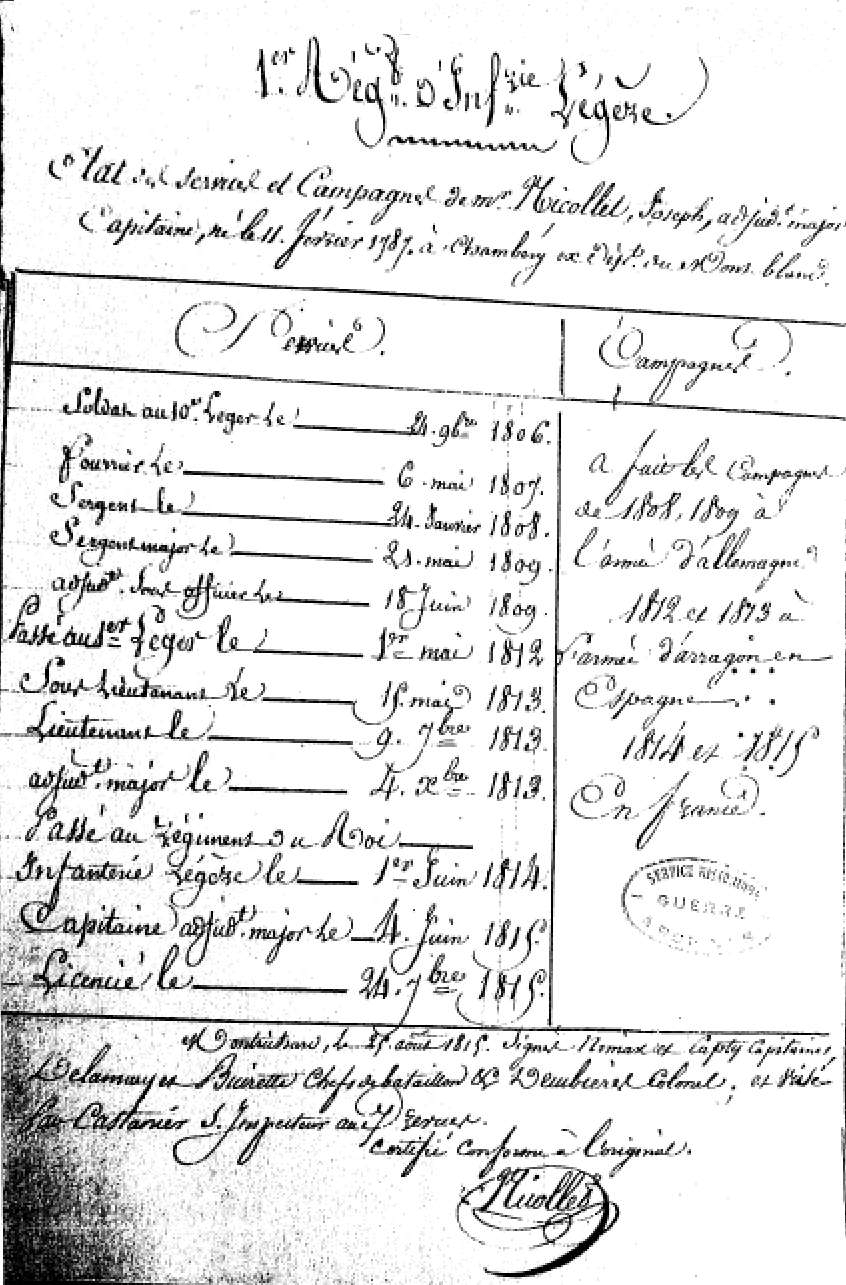 1er Régt d'Infrie Légère.
Etat des services et Campagnes de mr Nicollet, Joseph, adjudt major
Capitaine, né le 11. février 1787. à Chambéry ex Dépt du Mont blanc.
Services.
Campagnes.
Soldat au 10e Leger le 21. 9bre 1806.
Fourrier le 6. mai 1807.
Sergent le 24. Janvier 1808.
Sergent major le 21. mai 1809.
adjudt Sous officier le 18 Juin 1809.
Passé au 1er Léger le 1er mai 1812
Sous Lieutenant le 15. mai 1813.
Lieutenant le 9. 7bre 1813.
adjudt major le 4. xbre 1813.
Passé au Régiment du Roi
Infanterie Légère le 1er Juin 1814.
Capitaine adjudt major le 4. Juin 1815.
Licencié le 24. 7bre 1815.
a fait les Campagnes
de 1808, 1809 à
l'armée d'allemagne
1812 et 1813 à
l'armée d'arragon en
Espagne
1814 et 1815
En france.
SERVICE HISTORIQUE
GUERRE
le 25. août 1815. Signé et Capitaines,
et Buirette Chefs de bataillon & Colonel; et visé
Par Castanier S. Inspecteur aux Revues.
certifié conforme à l'original.
Nicollet